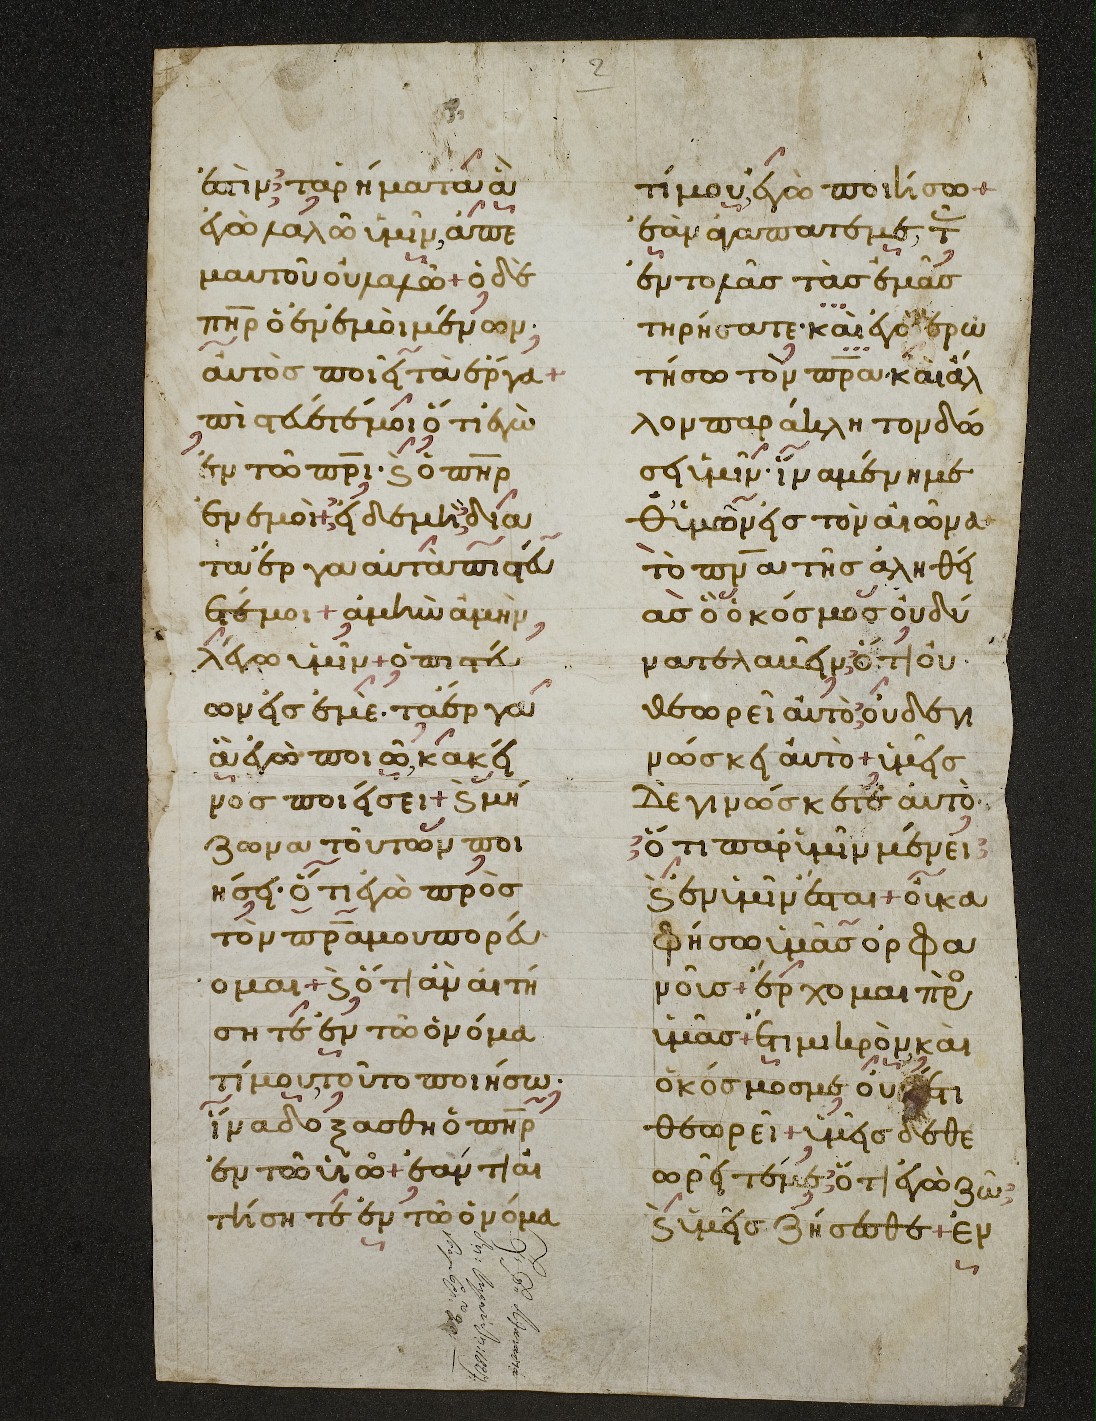 2
ἐστιν· τὰ ῥήματα ἃ
ἐγὼ λαλῶ ὑμῖν, ἀπ ἐ
μαυτοῦ οὐ λαλῶ + ὁ δὲ
πηρ ὁ ἐν ἐμοὶ μένων·
αὐτὸς ποιεῖ τὰ ἔργα +
πιστεύετέ μοι ὅτι ἐγὼ
ἐν τῶ πρι· ϗ ὁ πηρ
ἐν ἐμοὶ + εἰ δὲ μὴ διὰ
τὰ ἔργα αὐτὰ πιστεύ
ετέ μοι + ἀμὴν ἀμὴν
λέγω ὑμῖν + ὁ πιστεύ
ων εἰς ἐμὲ· τὰ ἔργα
ἃ ἐγὼ ποιῶ, κακεῖ
νος ποιήσει + ϗ μεί
ζωνα τούτων ποι
ήσει· ὅτι ἐγὼ πρὸς
τὸν πρα μου πορεύ
ομαι + ϗ ὅτι ἂν αἰτή
σητέ ἐν τῶ ὀνόμα
τί μου, τοῦτο ποιήσω·
ἵνα δοξασθῆ ὁ πηρ
ἐν τῶ υἱῶ + ἐάν τι αἰ
τήσητέ ἐν τῶ ὀνόμα
τί μου, ἐγὼ ποιήσω +
ἐὰν ἀγαπατέ με, τ
ἐντολὰς τὰς ἐμὰς
τηρήσατε· καὶ ἐγὼ ἐρω
τήσω τὸν πρα· καὶ ἄλ
λον παράκλητον δώ
σει ὑμῖν· ἵνα μένη με
θ ὑμῶν εἰς τὸν αἰῶνα
τὸ πνα τῆς ἀληθεί
ας ὃ ὁ κόσμος οὐ δύ
ναται λαβεῖν, ὅτι οὐ
θεωρεῖ αὐτὸ, οὐδὲ γι
νώσκει αὐτὸ + ὑμεῖς
δὲ γινώσκετε αὐτὸ·
ὅτι παρ ὑμῖν μένει
ϗ ἐν ὑμῖν ἔσται + οὐκ ἀ
φήσω ὑμᾶς ὀρφα
νοὺς + ἔρχομαι πρὸ
ὑμᾶς + ἔτι μικρὸν, καὶ
ὁ κόσμος με οὐκ ἔτι
θεωρεῖ + ὑμεῖς δὲ θε
ωρεῖτέ με, ὅτι ἐγὼ ζῶ
ϗ ὑμεῖς ζήσεσθε + ἐν